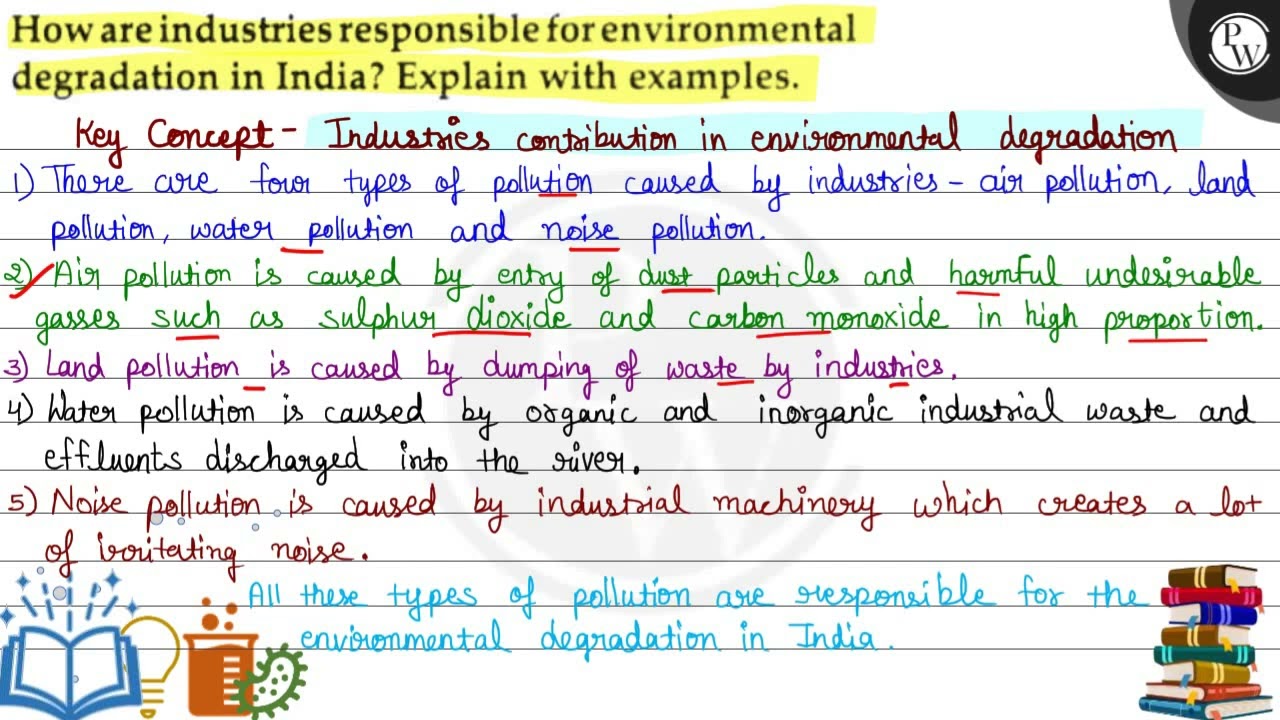 How are industries responsible for environmental
degradation in India? Explain with examples.
PW
Key Concept - Industries contribution in environmental degradation
1) There are four types of pollution caused by industries - air pollution, land
pollution, water pollution and noise pollution.
2) Air pollution is caused by entry of dust particles and harmful undesirable
gasses such as sulphur dioxide and carbon monoxide in high proportion.
3) Land pollution is caused by dumping of waste by industries.
4) Water pollution is caused by organic and inorganic industrial waste and
effluents discharged into the river.
5) Noise pollution is caused by industrial machinery which creates a lot
of irritating noise.
All these types of pollution are responsible for the
environmental degradation in India.